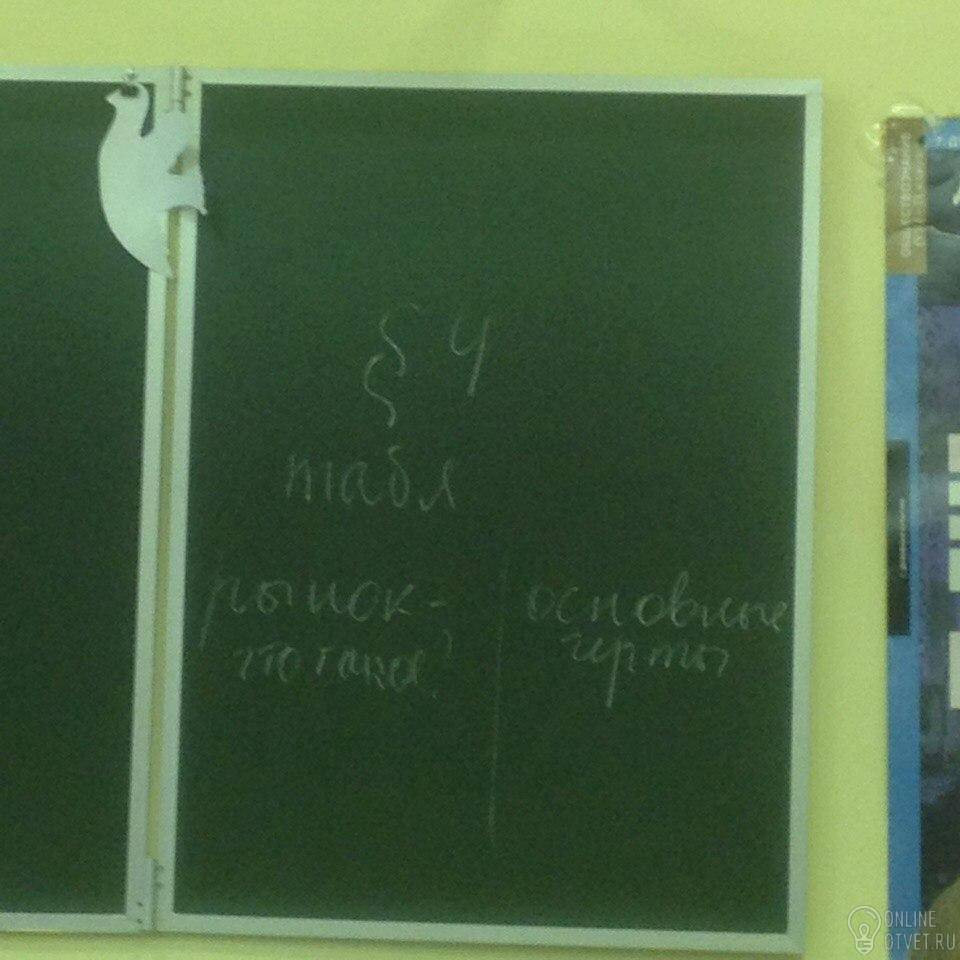 § 4
табл
рынок- | основные
что такое? | черты
ONLINE
OTVET.RU